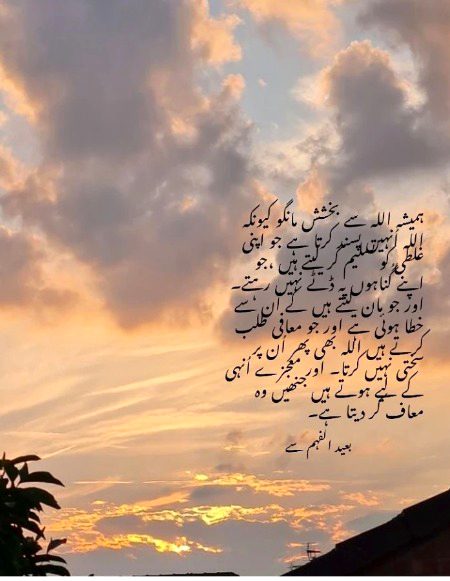 ہمیشہ اللہ سے بخشش مانگو کیونکہ
اللہ اُنہیں پسند کرتا ہے جو اپنی
غلطی کو تسلیم کر لیتے ہیں ،جو
اپنے گناہوں پہ ڈٹے نہیں رہتے۔
اور جو مان لیتے ہیں کے اُن سے
خطا ہوئی ہے اور جو معافی طلب
کرتے ہیں اللہ بھی پھر اُن پر
سختی نہیں کرتا۔ اور معجزے اُنہی
کے لیے ہوتے ہیں جنھیں وہ
معاف کر دیتا ہے۔
بعید الفہم سے